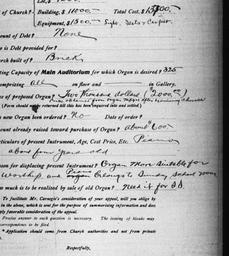 of Church? Building, $ Total Cost, $
Equipment, $
ount of Debt? None
is Debt provided for?
urch built of? Brick
ting Capacity of Main Auditorium for which Organ is desired? 325
omprising All on floor and in Gallery.
of proposed Organ? Two thousand dollars (2000.00)
(Form should
new Organ been Ordered? No Date of order?
ount already raised toward purchase of Organ? About 600
rticulars of present Instrument, Age, Cost Price, Etc. Piano
about four years old
son for displacing present Instrument? Organ More Suitable for
Worship, and Piano belongs to Sunday school room
much is to be realized by sale of old Organ? Need it for S.S.
To facilitate Mr. Carnegie's consideration of your appeal, will you oblige by
in the above, which is sent for the purpose of summarizing information and does
ly favorable consideration of the appeal.
Precise answer to each question is necessary. The issuing of blanks may
correspondence to be filed.
Application should come from Church authorities and not from private
Respectfully,